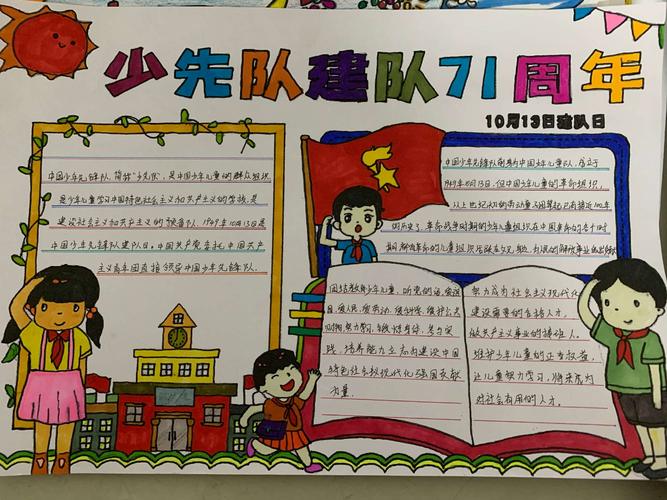 少先队建队71周年
10月13日建队日
中国少年先锋队,简称"少先队",是中国少年儿童的群众组织
是少年儿童学习中国特色社会主义和共产主义的学校,是
建设社会主义和共产主义的预备队。1949年10月13日是
中国少年先锋队建队日。中国共产党委托中国共产
主义青年团直接领导中国少年先锋队。
中国少年先锋队前身为中国少年儿童队,成立于
1949年10月13日,但中国少年儿童的革命组织,
以上世纪
的历史了,革命战争时期的少年儿童组织在中国革命的各个时
期
团结教育少年儿童,听党的话,爱祖
国,爱人民,爱劳动,爱科学,爱护公共
财物,努力学习,锻炼身体,参与实
践,培养能力,立志为建设中国
特色社会主义现代化强国贡献
力量。
努力成为社会主义现代化
建设需要的合格人才,
做共产主义事业的接班人。
维护少年儿童的正当权益,
让儿童努力学习,将来成为
对社会有用的人才。